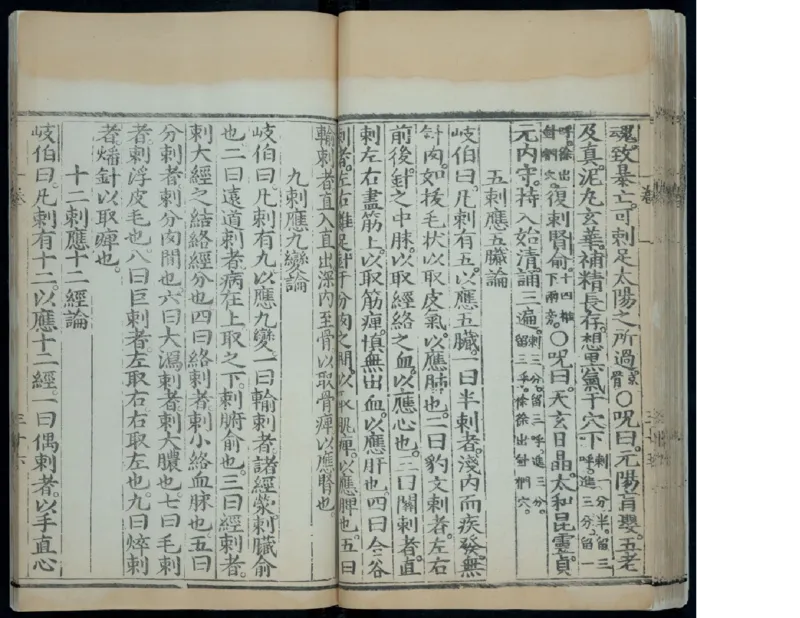 魂致暴亡。可刺足太陽之所過京骨○呪曰。元陽育嬰。五老
及真。泥丸玄華。補精長存。想黑氣于穴下刺一分半。留三呼。進三分。留一
呼。徐出針捫穴。復刺腎俞。十四椎下兩旁。○呪曰。天玄日晶。太和昆靈。貞
元內守。持入始清。誦三遍。刺三分。留三呼。進三分。留三呼。徐徐出針捫穴。
五刺應五臟論
岐伯曰。凡刺有五。以應五臟。一曰半刺者。淺內而疾發。無
針肉。如拔毛狀。以取皮氣。以應肺也。二曰豹文刺者。左右
前後。針之中脉。以取經絡之血。以應心也。三曰關刺者。直
刺左右盡筋上。以取筋痺。慎無出血。以應肝也。四曰合谷
刺者。左右雞足針于分肉之間。以取肌痺。以應脾也。五曰
輸刺者。直入直出。深內至骨。以取骨痺。以應腎也。
九刺應九變論
岐伯曰。凡刺有九。以應九變。一曰輸刺者。諸經滎刺臟俞
也。二曰遠道刺者。病在上取之下。刺腑俞也。三曰經刺者。
刺大經之結絡經分也。四曰絡刺者。刺小絡血脉也。五曰
分刺者。刺分肉間也。六曰大瀉刺者。刺大膿也。七曰毛刺
者。刺浮皮毛也。八曰巨刺者。左取右。右取左也。九曰焠刺
者。燔針以取痺也。
十二刺應十二經論
岐伯曰。凡刺有十二。以應十二經。一曰偶刺者。以手直心